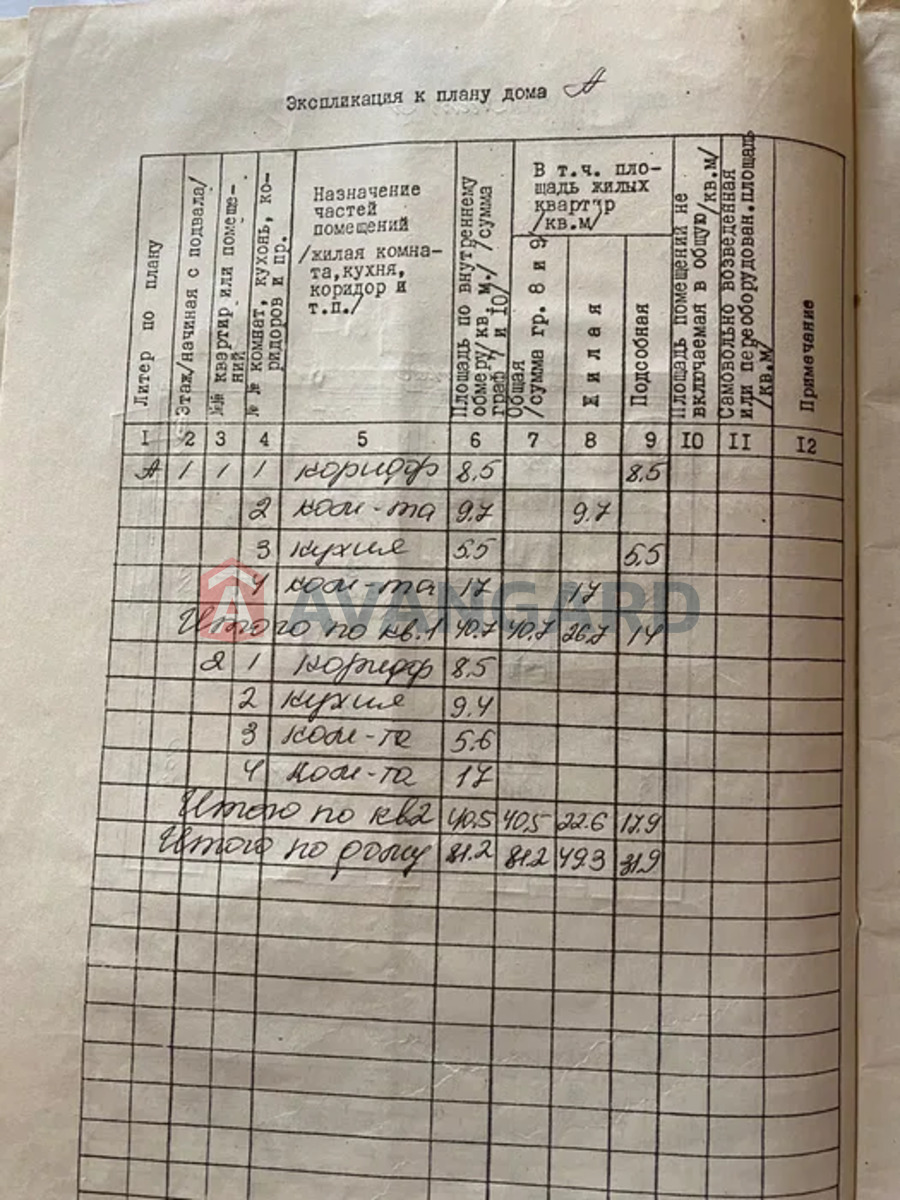 Экспликация к плану дома А
Литер по плану
Этаж/начиная с подвала/
№№ квартир или помеще-
ний
№ № комнат, кухонь, ко-
ридоров и пр.
Назначение
частей
помещений
/жилая комна-
та,кухня,
коридор и
т.п./
Площадь по внутреннему
обмеру/кв. м./ /сумма
граф 7 и 10/
В т.ч. пло-
щадь жилых
квартир
/кв.м/
Общая
/сумма гр. 8 и 9/
Жилая
Подсобная
Площадь помещений не
включаемая в общую/кв.м/
Самовольно возведенная
или переоборудован.площадь
/кв.м/
Примечание
I 2 3 4 5 6 7 8 9 I0 II I2
А 1 1 1 коридор 8.5 8.5
2 ком-та 9.7 9.7
3 кухня 5.5 5.5
4 ком-та 17 17
AVANGARD
Итого по кв.1 40.7 40.7 26.7 14
2 1 коридор 8.5
2 кухня 9.4
3 ком-та 5.6
4 ком-та 17
Итого по кв2 40.5 40.5 22.6 17.9
Итого по дому 81.2 81.2 49.3 31.9